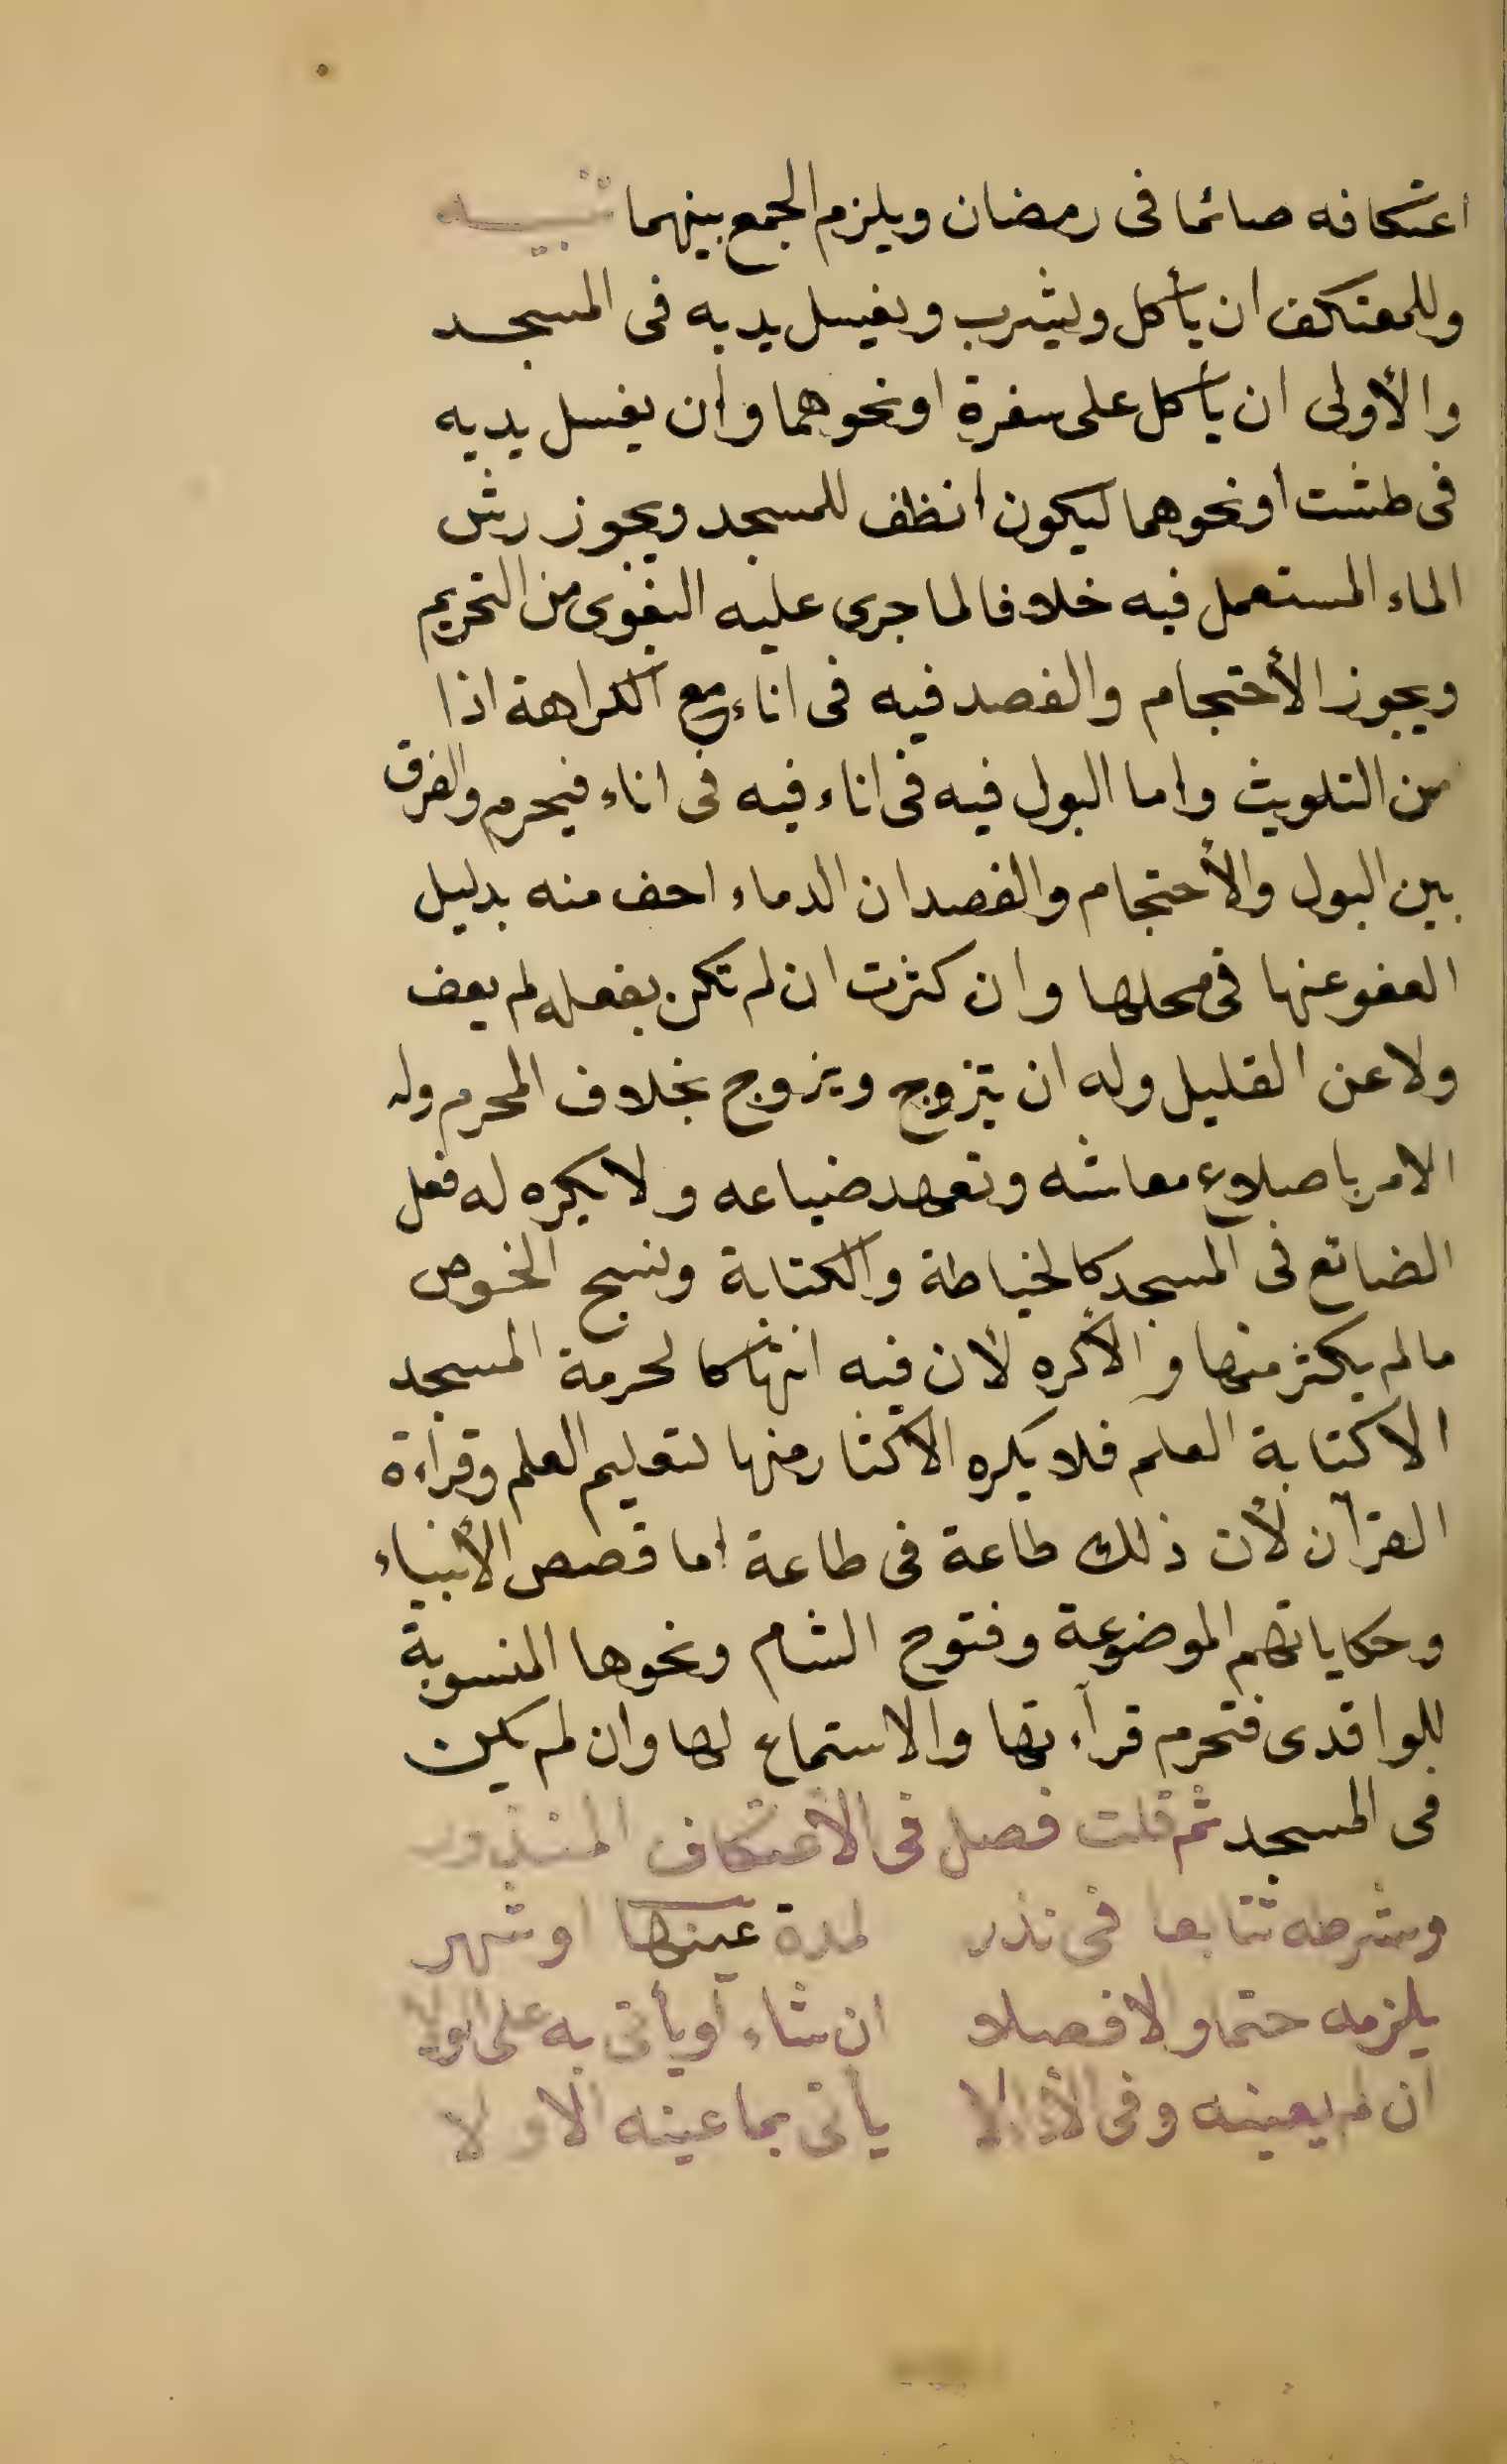 اعتكافه صائما فى رمضان ويلزم الجمع بينهما تنبيه
وللمعتكف ان يأكل ويشرب ويغسل يديه فى المسجد
والأولى ان يأكل على سفرة او نحوهما وان يغسل يديه
فى طشت او نحوهما ليكون انظف للمسجد ويجوز رش
الماء المستعمل فيه خلافا لما جرى عليه البغوى من التحريم
ويجوز الأحتجام والفصد فيه فى اناء مع الكراهة اذا
من التلويث واما البول فيه فى اناء فيه فى اناء فيحرم والفرق
بين البول والأحتجام والفصد ان الدماء احف منه بدليل
العفو عنها فى محلها وان كثرت ان لم تكن بفعله لم يعف
ولا عن القليل وله ان يتزوج ويزوج بخلاف المحرم وله
الامر باصلاح معاشه وتعهد ضياعه ولا يكره له فعل
الضائع فى المسجد كالخياطة والكتابة ونسج الخوص
مالم يكثر منها والأكره لأن فيه انتهاكا لحرمة المسجد
الاكتابة العلم فلا يكره الاكثار منها لتعليم العلم وقرآءة
القرآن لأن ذلك طاعة فى طاعة اما قصص الأنبياء
وحكاياتهم الموضوعة وفتوح الشام ونحوها المنسوبة
للواقدى فتحرم قرآءتها والاستماع لها وان لم يكن
فى المسجد ثم قلت فصل فى الاعتكاف المنذور
وشرطه تتابعا فى نذر لمدة عينها او شهر
يلزمه حتما والا فصلا ان شاء أو يأتى به على
ان لم يعينه وفى يأتى بما عينه الاولا